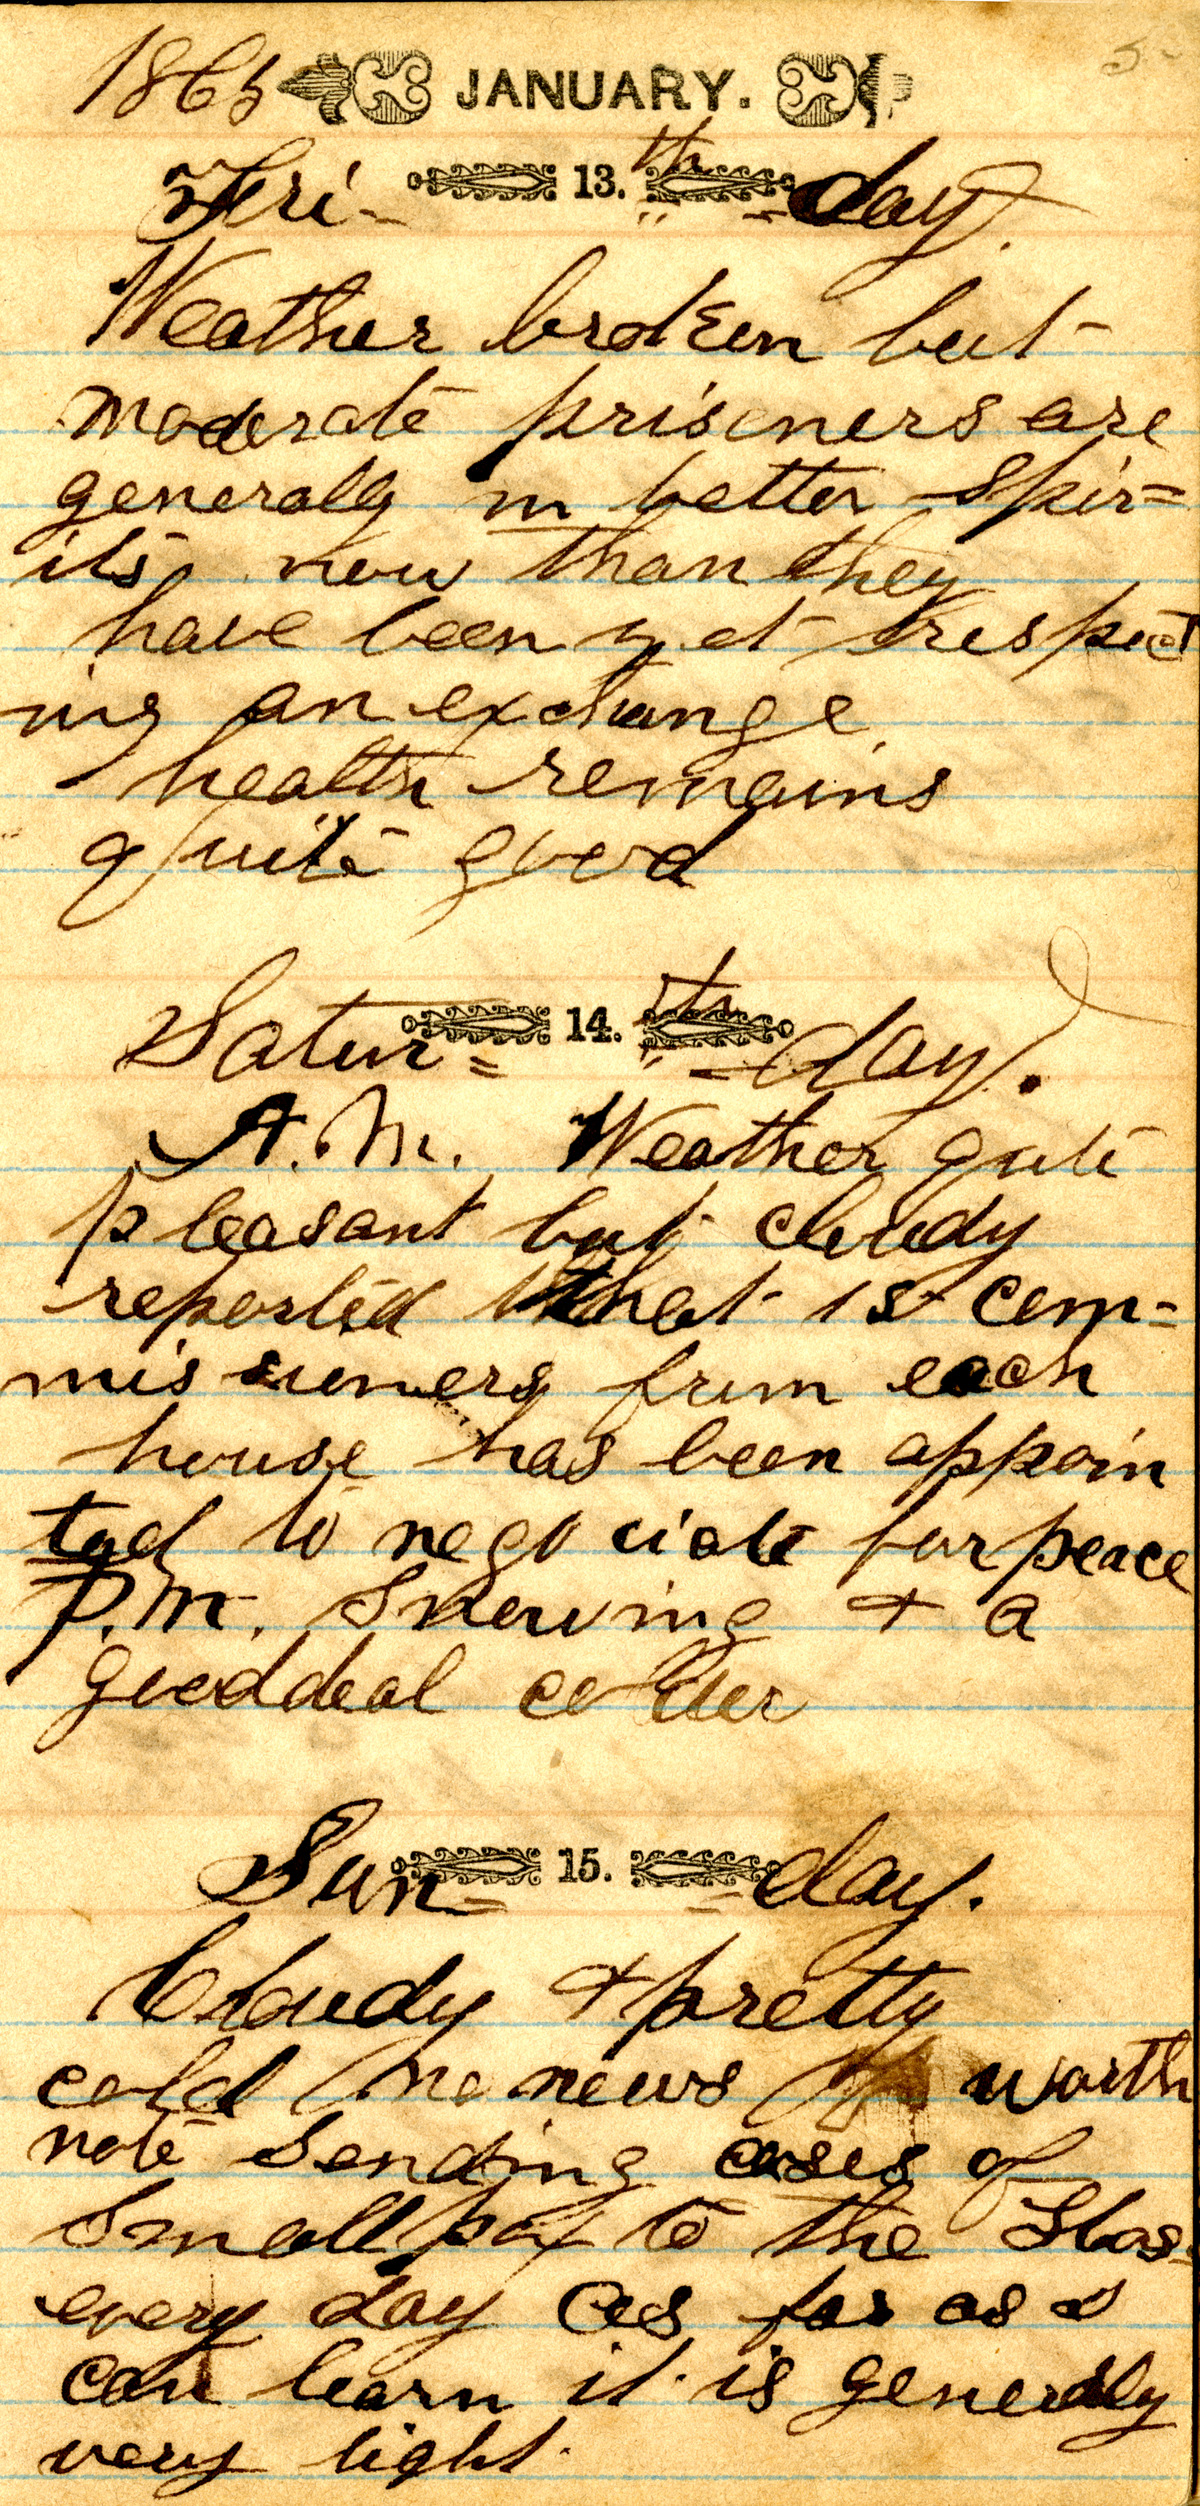 1865 JANUARY. 5
Fri- 13.th -day.
Weather broken but
moderate prisoners are
generally in better spir=
its now than they
have been yet respect
ing an exchange
health remains
quite good
Satur= 14.th =day.
A.M. Weather quite
pleasant but cloudy
reported that 15 com=
missioners from each
house has been appoin
ted to negociate for peace
P.M. Snowing + a
good deal colder
Sun= 15. =day.
Cloudy + pretty
cold no news worth
note sending cases of
Small pox to the Hos=
every day as far as I
can learn it is generaly
very light.